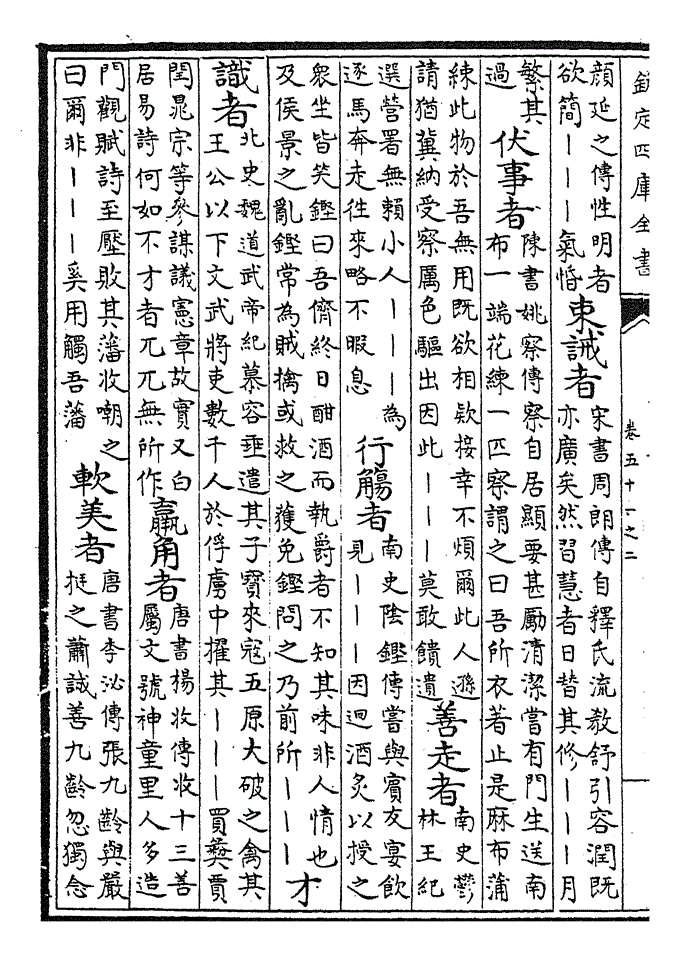 欽定四庫全書
卷五十一之二
顔延之傳性明者
欲簡丨丨丨氣惛
束誡者
宋書周朗傳自釋氏流教舒引容潤既
亦廣矣然習慧者日替其修丨丨丨月
繁其
過
伏事者
陳書姚察傳察自居顯要甚勵清潔嘗有門生送南
布一端花綀一匹察謂之曰吾所衣著止是麻布蒲
綀此物於吾無用既欲相欵接幸不煩爾此人遜
請猶冀納受察厲色驅出因此丨丨丨莫敢饋遺
善走者
南史鬱
林王紀
選營署無賴小人丨丨丨為
逐馬奔走徃來略不暇息
行觴者
南史陰鏗傳嘗與賓友宴飲
見丨丨丨因迴酒炙以授之
衆坐皆笑鏗曰吾儕終日酣酒而執爵者不知其味非人情也
及侯景之亂鏗常為賊擒或救之獲免鏗問之乃前所丨丨丨
才
識者
北史魏道武帝紀慕容垂遣其子寶來寇五原大破之禽其
王公以下文武將吏數千人於俘虜中擢其丨丨丨賈彝賈
閏晁宗等參謀議憲章故實又白
居易詩何如不才者兀兀無所作
羸角者
唐書楊收傳收十三善
屬文號神童里人多造
門觀賦詩至壓敗其藩收嘲之
曰爾非丨丨丨奚用觸吾藩
軟美者
唐書李泌傳張九齡與嚴
挺之蕭誠善九齡忽獨念